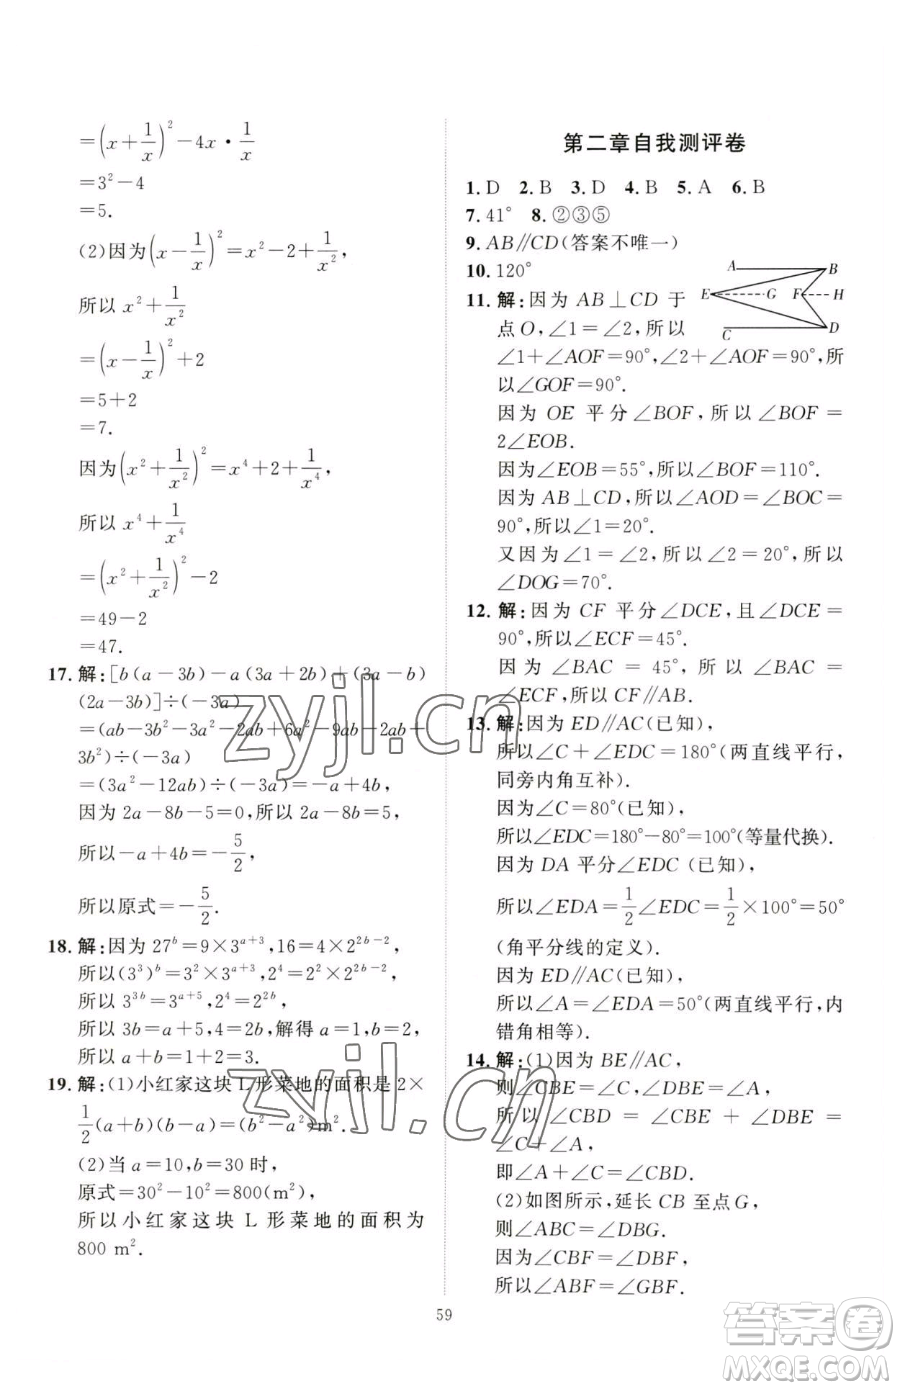 =(x+1/x)²−4x·1/x
=3²−4
=5.
(2)因为(x−1/x)²=x²−2+1/x²,
所以 x²+1/x²
=(x−1/x)²+2
=5+2
=7.
因为(x²+1/x²)²=x⁴+2+1/x⁴,
所以 x⁴+1/x⁴
=(x²+1/x²)²−2
=49−2
=47.
17. 解:[b(a−3b)−a(3a+2b)+(3a−b)
(2a−3b)]÷(−3a)
=(ab−3b²−3a²−2ab+6a²−9ab−2ab+
3b²)÷(−3a)
=(3a²−12ab)÷(−3a)=−a+4b,
因为 2a−8b−5=0,所以 2a−8b=5,
所以−a+4b=−5/2,
所以原式=−5/2.
18. 解:因为 27ᵇ=9×3ᵃ⁺³,16=4×2²ᵇ⁻²,
所以(3³)ᵇ=3²×3ᵃ⁺³,2⁴=2²×2²ᵇ⁻²,
所以 3³ᵇ=3ᵃ⁺⁵,2⁴=2²ᵇ,
所以 3b=a+5,4=2b,解得 a=1,b=2,
所以 a+b=1+2=3.
19. 解:(1)小红家这块 L 形菜地的面积是 2×
1/2(a+b)(b−a)=(b²−a²)m².
(2)当 a=10,b=30 时,
原式=30²−10²=800(m²)
所以小红家这块 L 形菜地的面积为
800 m².
第二章自我测评卷
1. D 2. B 3. D 4. B 5. A 6. B
7. 41° 8. ②③⑤
9. AB∥CD(答案不唯一)
10. 120°
A B
E G F H
C D
11. 解:因为 AB⊥CD 于
点 O,∠1=∠2,所以
∠1+∠AOF=90°,∠2+∠AOF=90°,所
以∠GOF=90°.
因为 OE 平分∠BOF,所以∠BOF=
2∠EOB.
因为∠EOB=55°,所以∠BOF=110°.
因为 AB⊥CD,所以∠AOD=∠BOC=
90°,所以∠1=20°.
又因为∠1=∠2,所以∠2=20°,所以
∠DOG=70°.
12. 解:因为 CF 平分∠DCE,且∠DCE=
90°,所以∠ECF=45°.
因为 ∠BAC = 45°,所以 ∠BAC =
∠ECF,所以 CF∥AB.
13. 解:因为 ED∥AC(已知),
所以∠C+∠EDC=180°(两直线平行,
同旁内角互补).
因为∠C=80°(已知),
所以∠EDC=180°−80°=100°(等量代换).
因为 DA 平分∠EDC(已知),
所以∠EDA=1/2∠EDC=1/2×100°=50°
(角平分线的定义).
因为 ED∥AC(已知),
所以∠A=∠EDA=50°(两直线平行,内
错角相等).
14. 解:(1)因为 BE∥AC,
则∠CBE=∠C,∠DBE=∠A,
所以 ∠CBD = ∠CBE + ∠DBE =
∠A+∠C,
即∠A+∠C=∠CBD.
(2)如图所示,延长 CB 至点 G,
则∠ABC=∠DBG.
因为∠CBF=∠DBF,
所以∠ABF=∠GBF.
59
zyjl.cn
zyjl.cn
答案圈
MXQE.COM